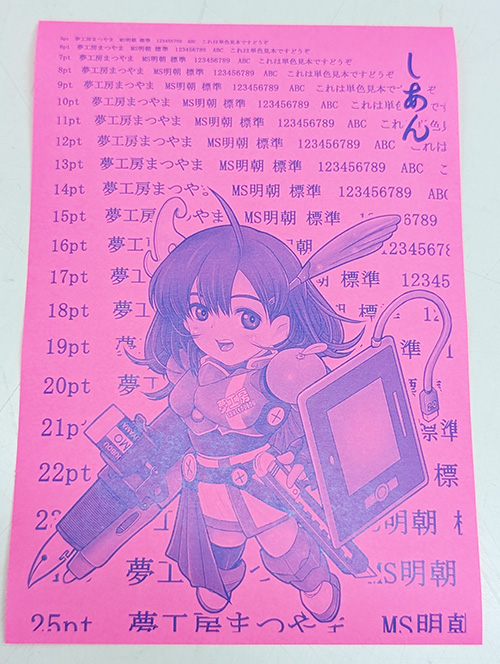 5pt 夢工房まつやま MS明朝 標準 123456789 ABC これは単色見本ですどうぞ
6pt 夢工房まつやま MS明朝 標準 123456789 ABC これは単色見本ですどうぞ
7pt 夢工房まつやま MS明朝 標準 123456789 ABC これは単色見本ですどうぞ
8pt 夢工房まつやま MS明朝 標準 123456789 ABC これは単色見本ですどうぞ
9pt 夢工房まつやま MS明朝 標準 123456789 ABC これは単色見本です
10pt 夢工房まつやま MS明朝 標準 123456789 ABC これは単色見本です
11pt 夢工房まつやま MS明朝 標準 123456789 ABC これは単色見
12pt 夢工房まつやま MS明朝 標準 123456789 ABC これは
13pt 夢工房まつやま MS明朝 標準 123456789 ABC
14pt 夢工房まつやま MS明朝 標準 123456789 ABC
15pt 夢工房まつやま MS明朝 標準 123456789
16pt 夢工 標準 123456789
17pt 夢工 明 標準 12345
18pt 夢工 明 標準 12
19pt 夢工 準 1
20pt 夢工
21pt 夢 標準
22pt 夢 標
夢 MS明朝
夢工 MS明朝
25pt 夢工房まつやま MS明朝
しあん
夢工房
MO